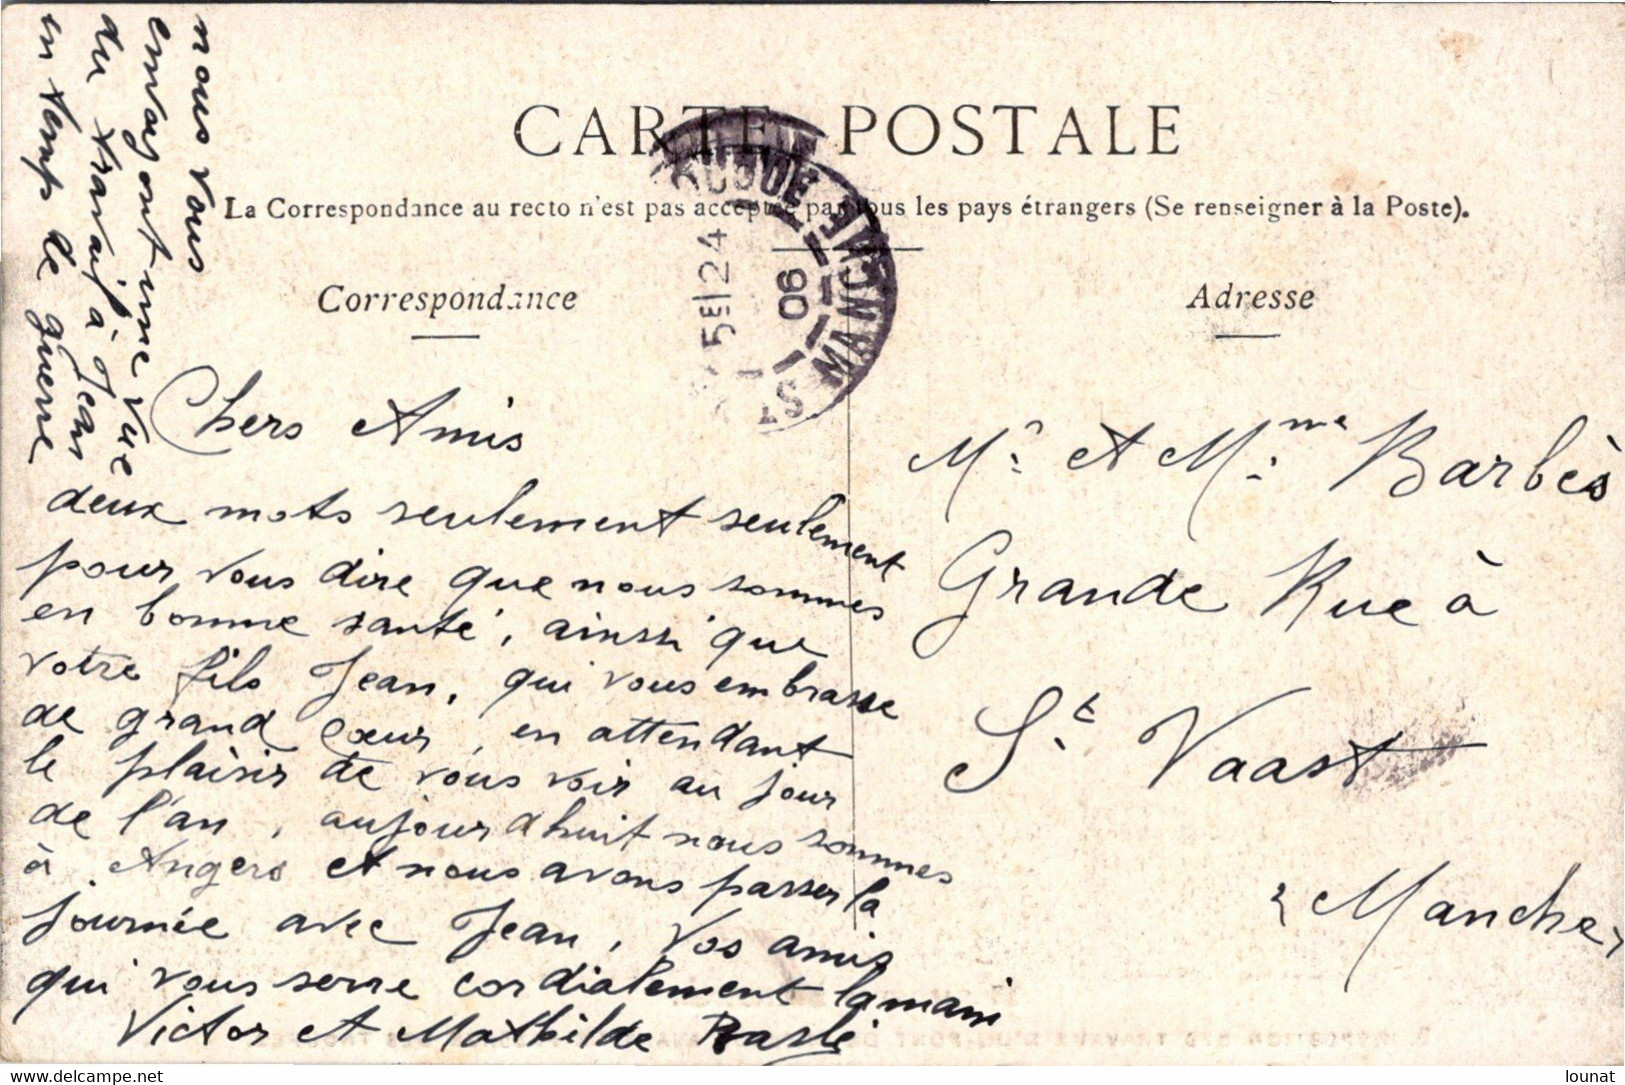 CARTE POSTALE
La Correspondance au recto n'est pas acceptée par tous les pays étrangers (Se renseigner à la Poste).
Correspondance
Adresse
5E 24
06
MANCHE
Chers Amis
deux mots seulement seulement
pour vous dire que nous sommes
en bonne santé, ainsi que
votre fils Jean, qui vous embrasse
de grand cœur, en attendant
le plaisir de vous voir au jour
de l'an, aujourd'huit nous sommes
à Angers et nous avons passer la
journée avec Jean, Vos amis
qui vous serre cordialement la main
Victor et Mathilde
nous vous
envayont une vue
du travaif à Jean
en temps de guerre
Mr et Mme Barbès
Grande Rue à
St Vaast
Manche
delcampe.net
lounat